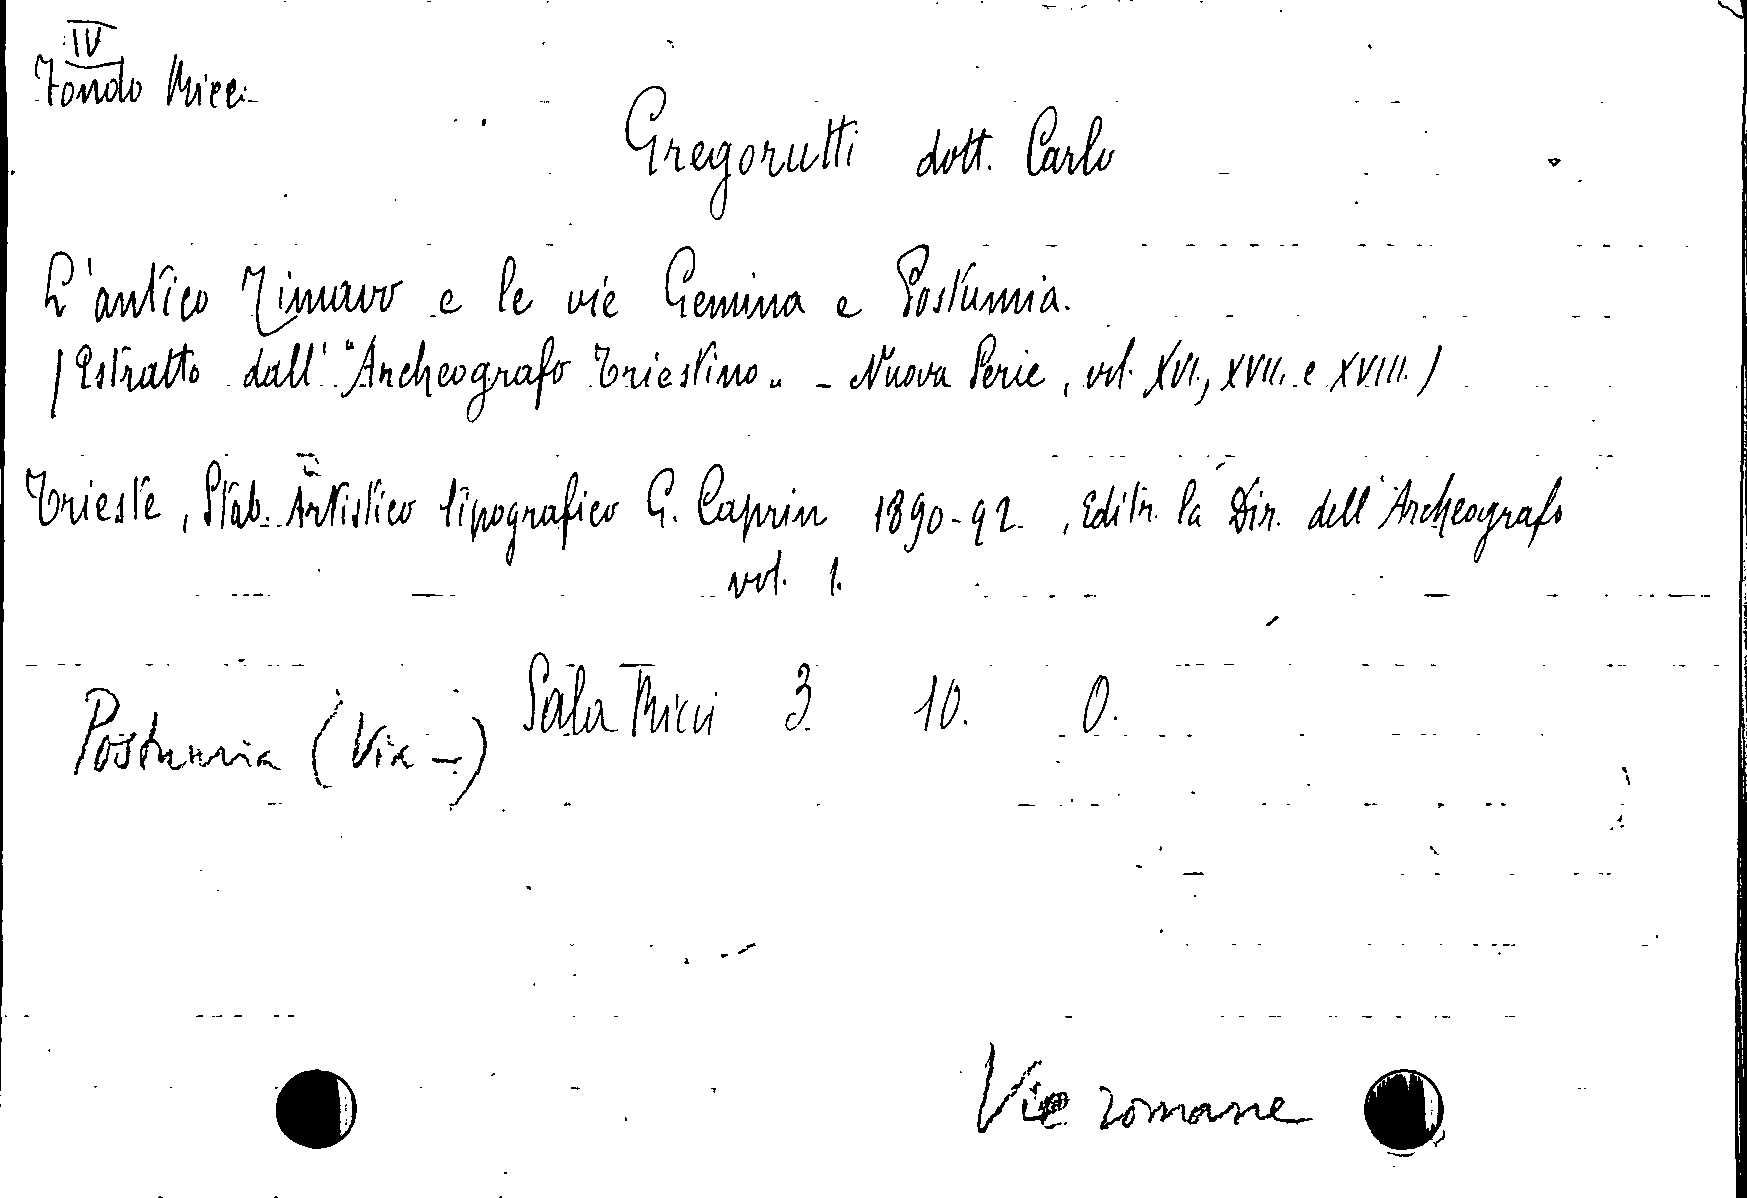 IV
Fondo Ricci
Gregorutti dott. Carlo
L'antico Timavo e le vie Gemina e Postumia.
(Estratto dall' "Archeografo Triestino„ - Nuova Serie, vol. XVI., XVII. e XVIII.)
Trieste, Stab. Artistico tipografico G. Caprin 1890-92. , Editr. la Dir. dell'Archeografo
vol. 1.
Sala Ricci 3. 10. O.
Postumia (Via -)
Vie romane